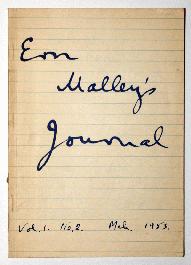 Ern
Malley's
Journal
Vol. 1. No. 2. Mch. 1953.